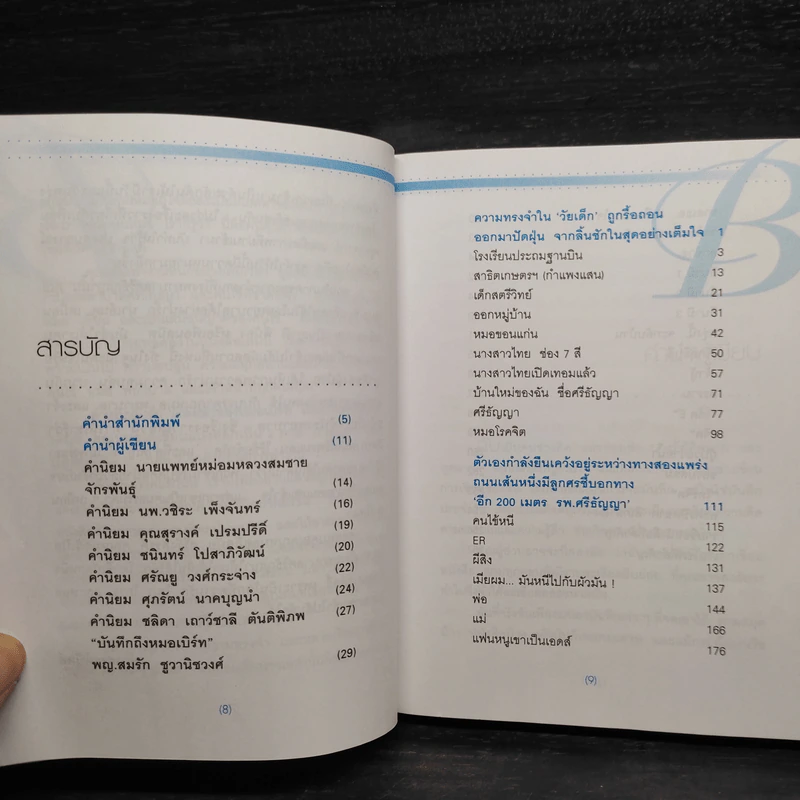 สารบัญ
คำนำสำนักพิมพ์ (5)
คำนำผู้เขียน (11)
คำนิยม นายแพทย์หม่อมหลวงสมชาย
จักรพันธุ์ (14)
คำนิยม นพ.วชิระ เพ็งจันทร์ (16)
คำนิยม คุณสุรางค์ เปรมปรีดิ์ (19)
คำนิยม ชนินทร์ โปสาภิวัฒน์ (20)
คำนิยม ศรัณยู วงศ์กระจ่าง (22)
คำนิยม ศุภรัตน์ นาคบุญนำ (24)
คำนิยม ชลิดา เถาว์ชาลี ตันติพิภพ (27)
“บันทึกถึงหมอเบิร์ท”
พญ.สมรัก ชูวานิชวงศ์ (29)
(8)
B
ความทรงจำใน ‘วัยเด็ก’ ถูกรื้อถอน
ออกมาปัดฝุ่น จากลิ้นชักในสุดอย่างเต็มใจ 1
โรงเรียนประถมฐานบิน 3
สาธิตเกษตรฯ (กำแพงแสน) 13
เด็กสตรีวิทย์ 21
ออกหมู่บ้าน 31
หมอขอนแก่น 42
นางสาวไทย ช่อง 7 สี 50
นางสาวไทยเปิดเทอมแล้ว 57
บ้านใหม่ของฉัน ชื่อศรีธัญญา 71
ศรีธัญญา 77
หมอโรคจิต 98
ตัวเองกำลังยืนเคว้งอยู่ระหว่างทางสองแพร่ง
ถนนเส้นหนึ่งมีลูกศรชี้บอกทาง
‘อีก 200 เมตร รพ.ศรีธัญญา’ 111
คนไข้หนี 115
ER 122
ผีสิง 131
เมียผม... มันหนีไปกับผัวมัน ! 137
พ่อ 144
แม่ 166
แฟนหนูเขาเป็นเอดส์ 176
(9)